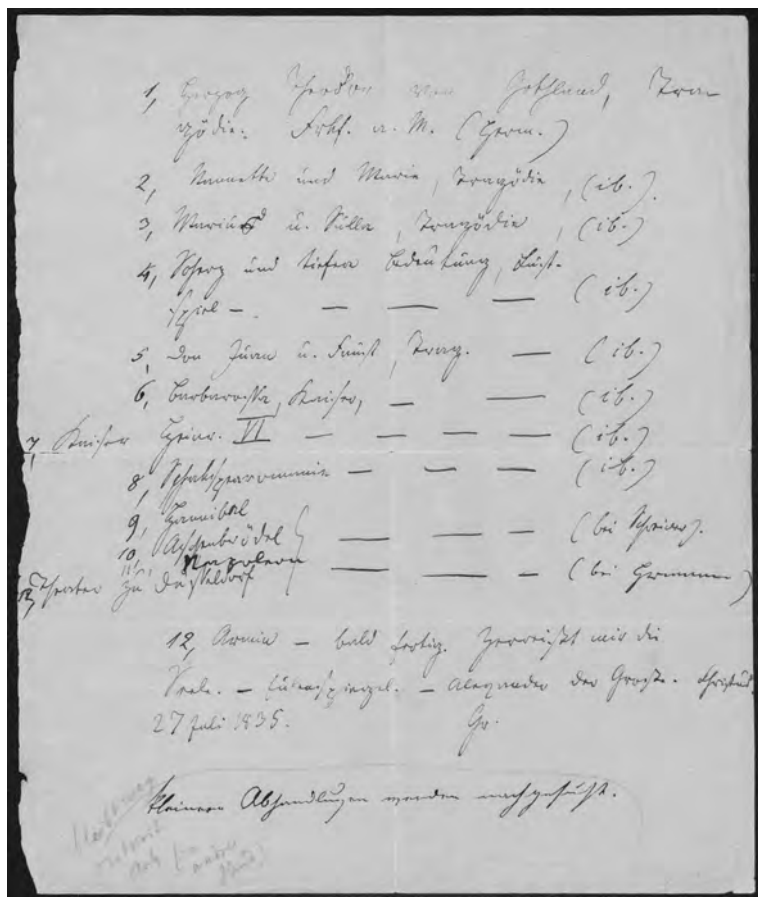 1, Herzog Theodor von Gothland, Tra-
gödie. Frkf. a. M. (Herm.)
2, Nannette und Marie, Tragödie, (ib.).
3, Marius u. Sulla, Tragödie, (ib.)
4, Scherz und tiefere Bedeutung, Lust-
spiel — — — — (ib.)
5, Don Juan u. Faust, Trag. — (ib.)
6, Barbarossa, Kaiser, — — (ib.)
7, Kaiser Heinr. VI — — — — (ib.)
8, Shakspearomanie — — — (ib.)
9, Hannibal
10, Aschenbrödel — — — (bei Schreiner).
11, Napoleon — — — (bei Hermann)
Theater zu Düsseldorf
12, Armin — bald fertig. Zerreißt mir die
Seele. — Eulenspiegel. — Alexander der Große. Christus.
27 Juli 1835. Gr.
kleinere Abhandlungen werden nachgesucht.